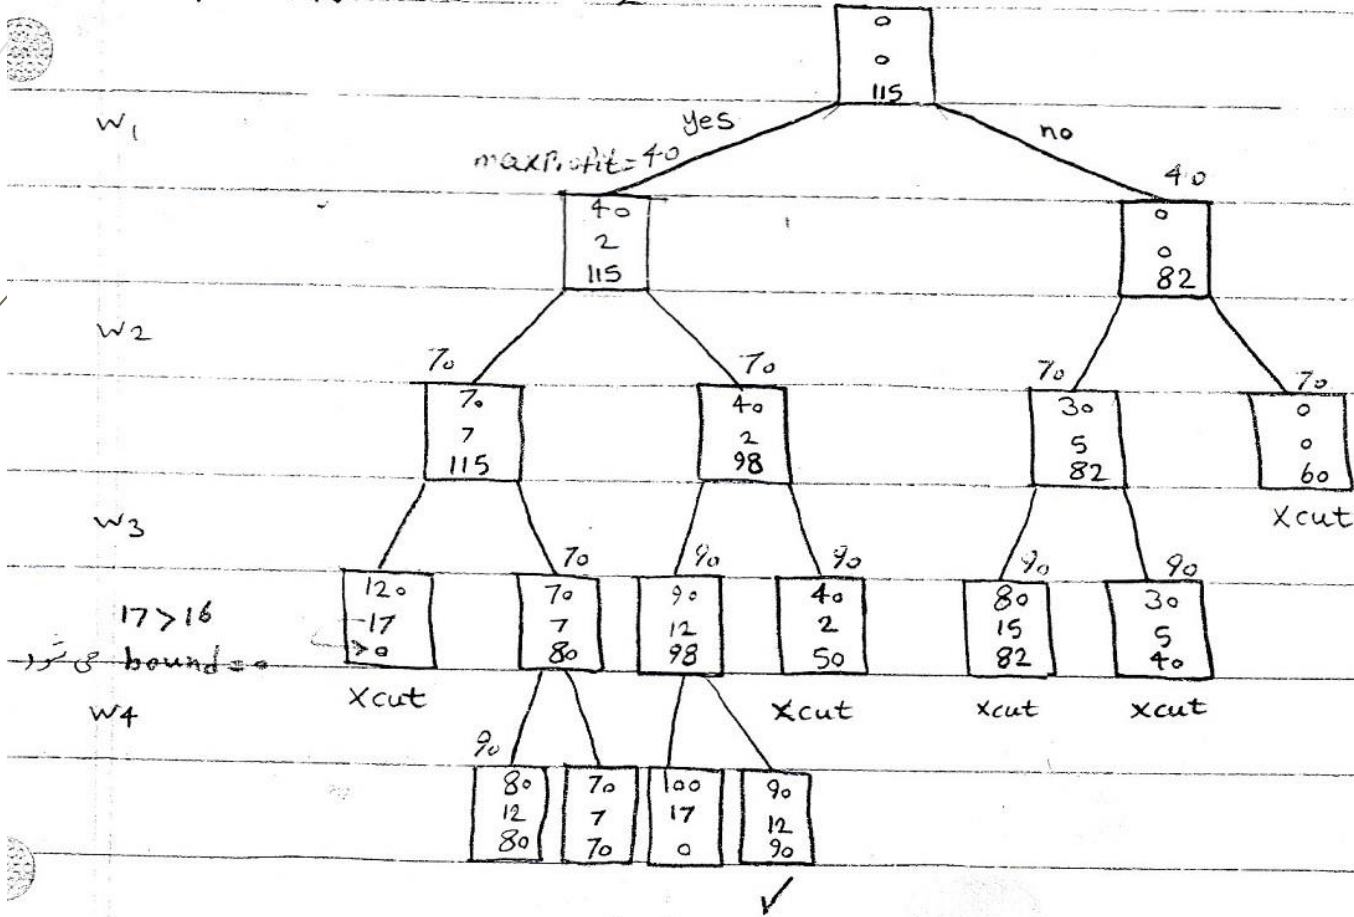 0
0
115
W1
yes
no
maxProfit=40
40
40
2
115
0
0
82
W2
70
70
70
70
70
7
115
40
2
98
30
5
82
0
0
60
xcut
W3
70
90
90
90
90
17>16
bound=0 می شود
120
17
0
70
7
80
90
12
98
40
2
50
80
15
82
30
5
40
xcut
xcut
xcut
xcut
W4
90
80
12
80
70
7
70
100
17
0
90
12
90
✓